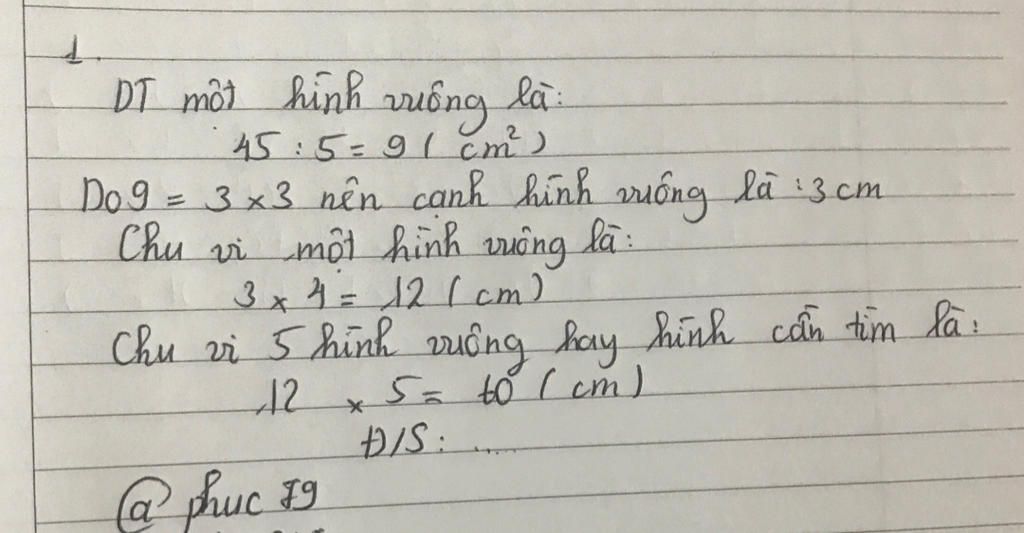 1.
DT một hình vuông là:
45 : 5 = 9 ( cm²)
Do 9 = 3 x 3 nên cạnh hình vuông là : 3 cm
Chu vi một hình vuông là:
3 x 4 = 12 ( cm)
Chu vi 5 hình vuông hay hình cần tìm là:
12 x 5 = 60 ( cm)
Đ/S: .....
@ phuc 79